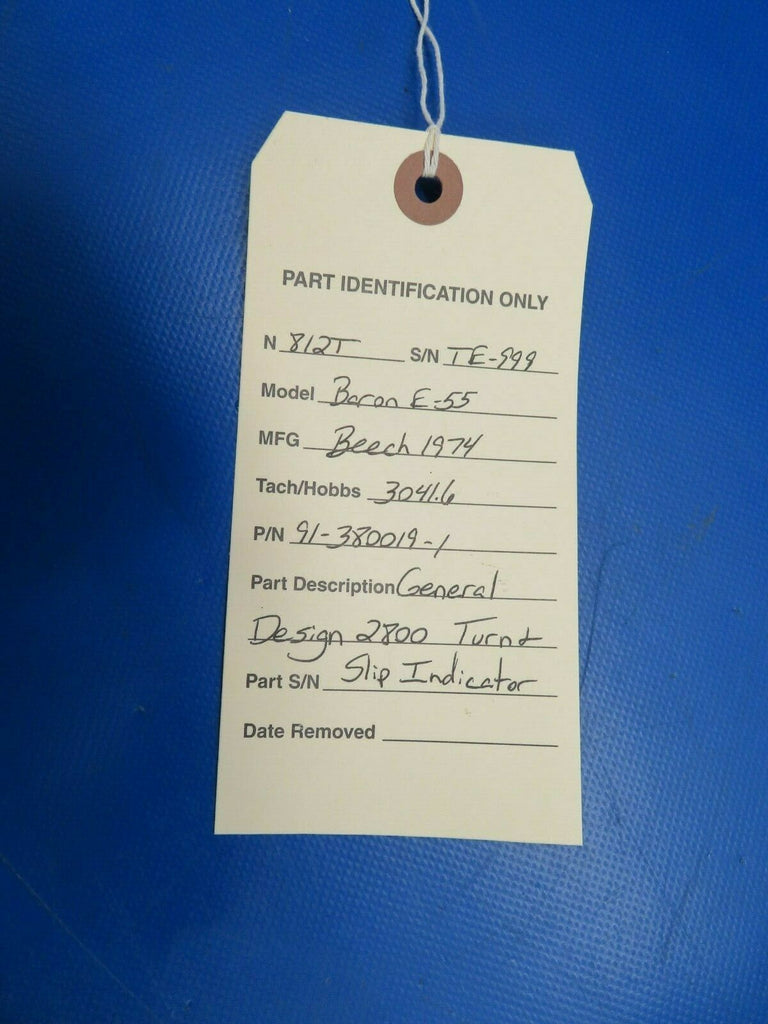 PART IDENTIFICATION ONLY
N 812T S/N TE-999
Model Baron E-55
MFG Beech 1974
Tach/Hobbs 3041.6
P/N 91-380019-1
Part Description General
Design 2800 Turn &
Part S/N Slip Indicator
Date Removed